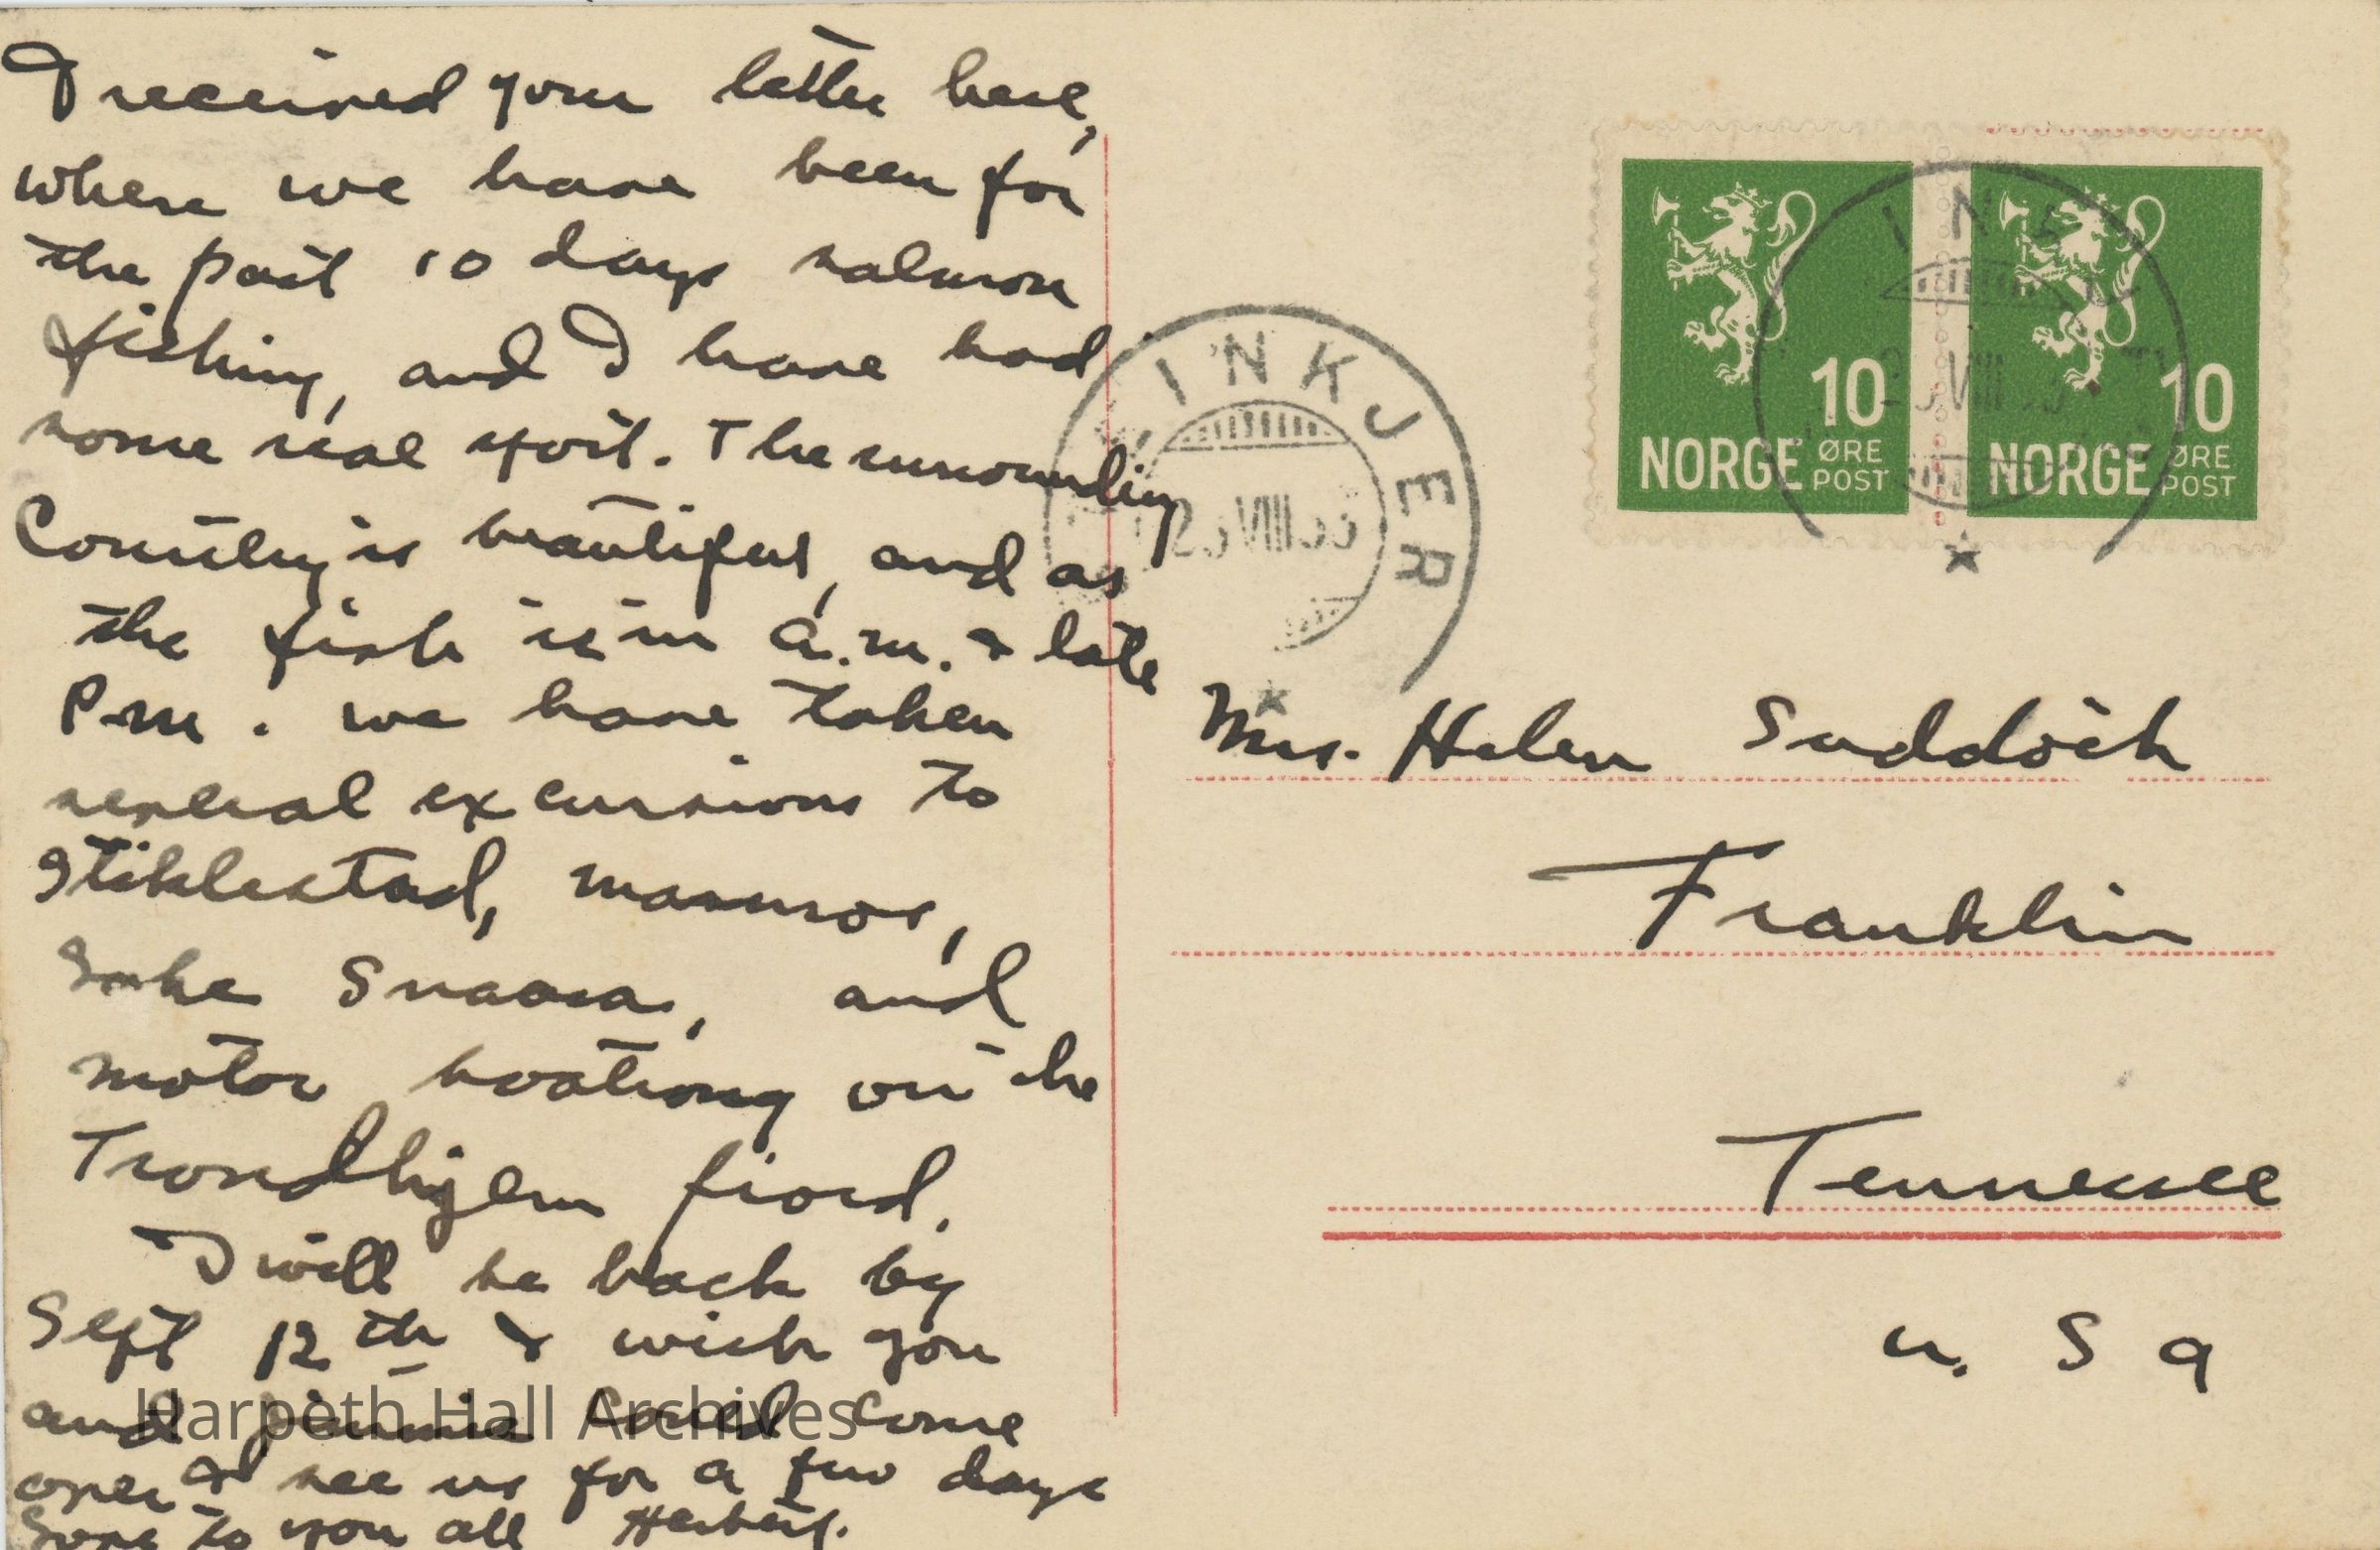 I received your letter here,
where we have been for
the past 10 days salmon
fishing, and I have had
some real sport. The surrounding
Country is beautiful, and as
the fish is in a.m. & late
P.m. we have taken
several excursions to
Stiklestad,
Lake Snaasa, and
motor boating on the
Trondhjem fiord.
I will be back by
Sept 12th & wish you
and Jimmie could come
over & see us for a few days
Love to you all Herbert.
INKJER
VIII
10
NORGE ØRE
POST
10
NORGE ØRE
POST
INK
VIII
Mrs. Helen Suddoth
Franklin
Tennessee
U. S a
Harpeth Hall Archives